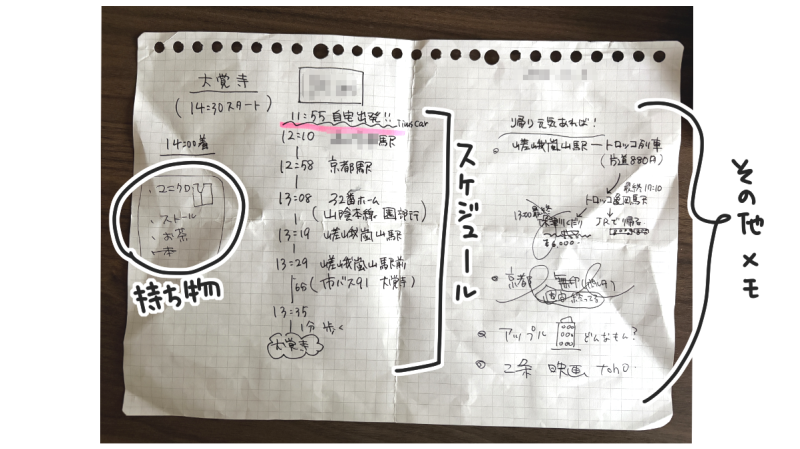 大覚寺
(14:30スタート)
14:00着
・ユニクロ
・ストール
・お茶
・本
持ち物
11:55 自宅出発!! Times Car
12:10 駅
12:58 京都駅
13:08 32番ホーム
(山陰本線 園部行)
13:19 嵯峨嵐山駅
13:29 嵯峨嵐山駅前
(市バス91 大覚寺)
13:35
1分 歩く
大覚寺
スケジュール
帰り元気あれば!
嵯峨嵐山駅 — トロッコ列車
(片道880円)
最終17:10
トロッコ亀岡駅
13:00
JRで帰る
京都 無印
アップル どんなもん?
二条 映画 toho.
その他メモ